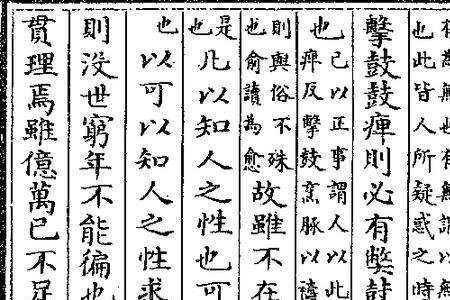 也此皆人所疑惑之時
擊鼓鼓痺則必有獘鼓
也
已以正事謂人以此
痺反擊鼓烹豚以禱
則與俗不殊
也俞讀為愈
故雖不在
是
也
凡以知人之性也可
也以可以知人之性求
則没世窮年不能徧也
貫理焉雖億萬已不足